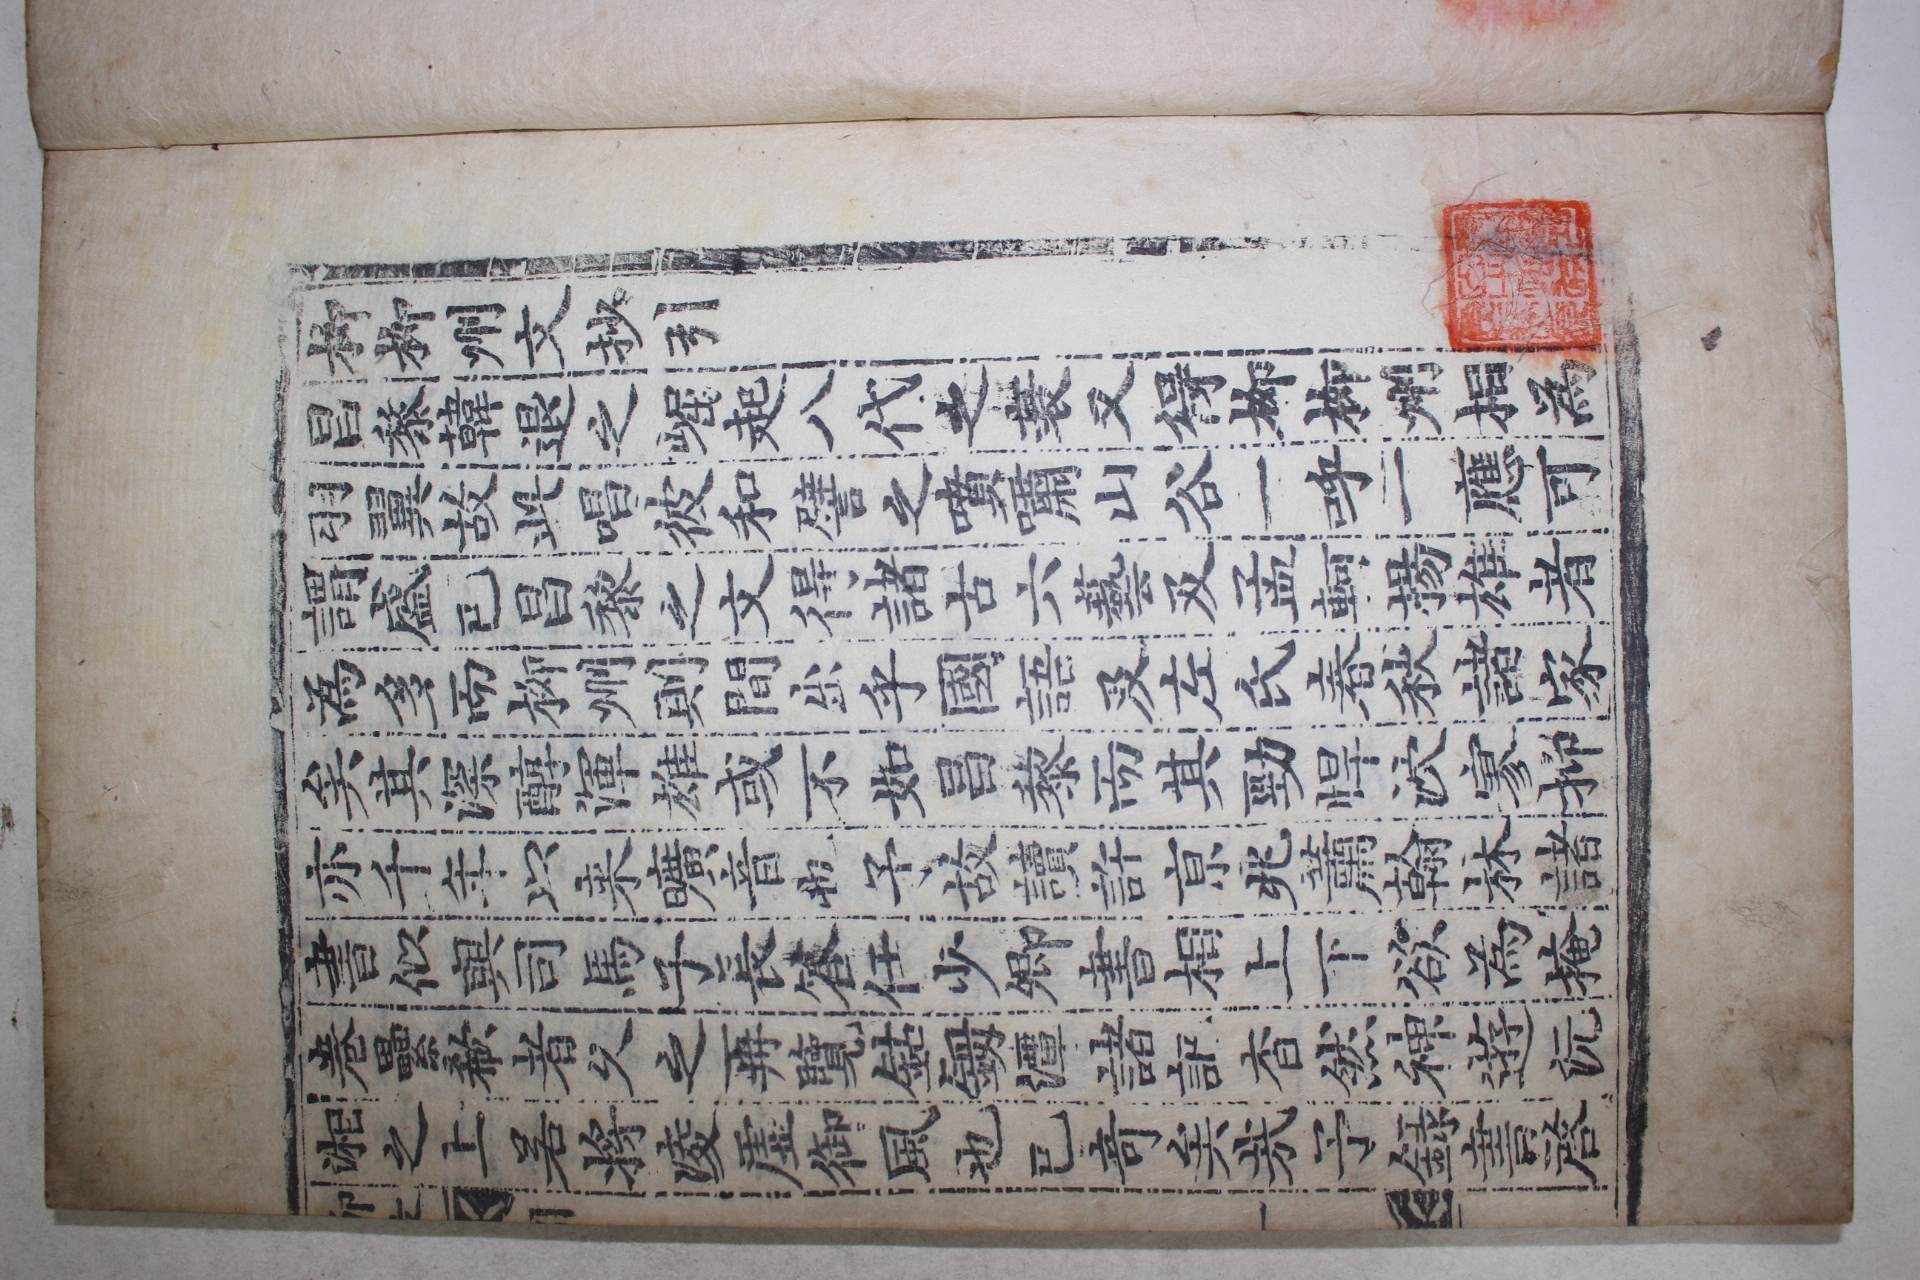 柳柳州文抄引
昌黎韓退之崛起八代之衰又得柳柳州相為
羽翼故此唱彼和譬之噴嘯山谷一呼二應可
謂盛已昌黎之文得諸古六藝及孟軻揚雄者
為多而柳州則間出乎國語及左氏春秋諸家
矣其深醇渾雄或不如昌黎而其勁悍泬寥抑
亦千年以來曠音也予故讀許京兆蕭翰林諸
書似與司馬子長答任少卿書相上下欲為掩
卷纍欷者久之再覽鈷鉧潭諸記杳然神遊沅
湘之上若將凌虛御風也已奇矣哉予錄書啓